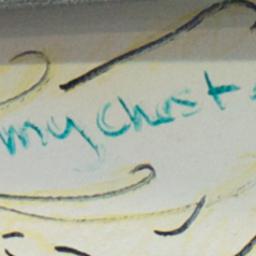 my chest